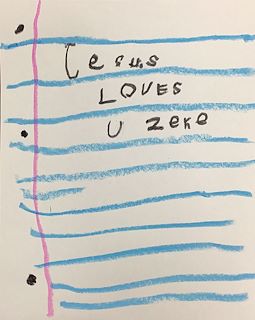 Jesus
LOVES
U zeke